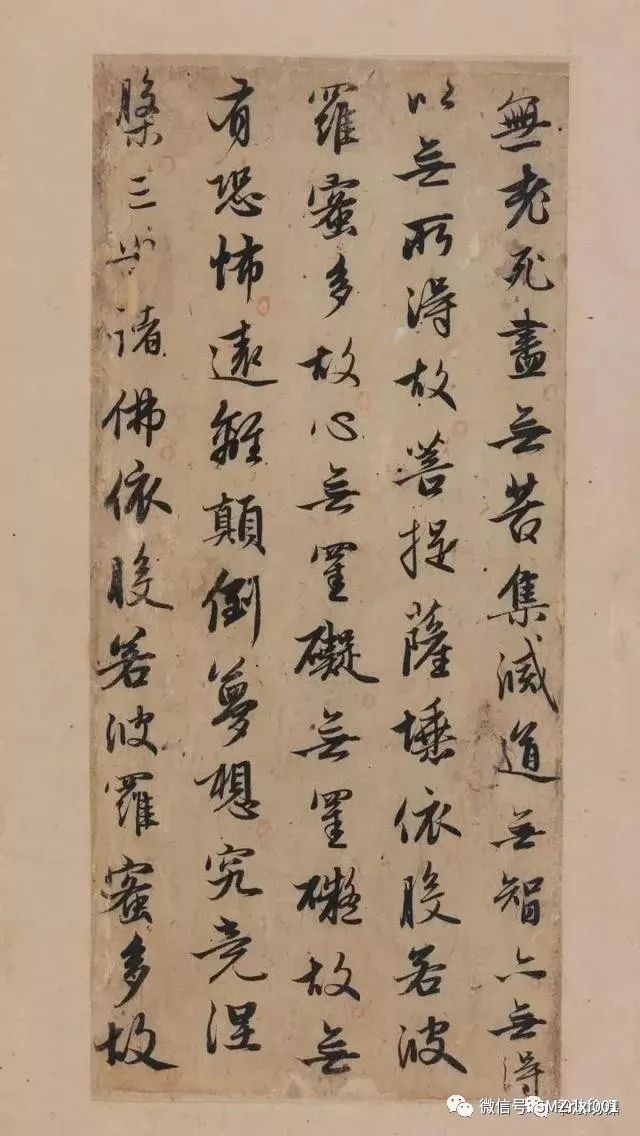 無老死盡無苦集滅道無智亦無得
以無所得故菩提薩埵依般若波
羅蜜多故心無罣礙無罣礙故無
有恐怖遠離顛倒夢想究竟涅
槃三世諸佛依般若波羅蜜多故
微信号